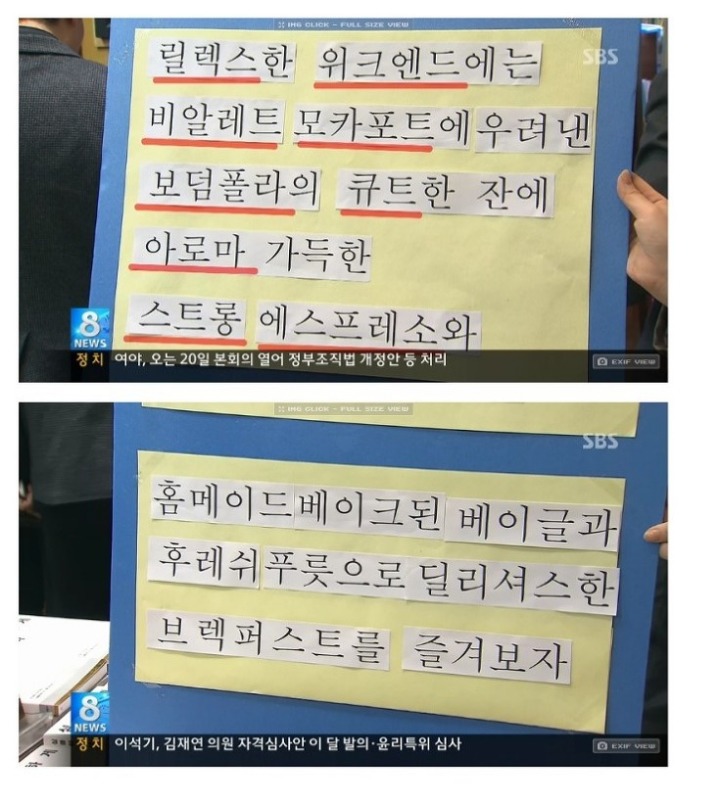 IMG CLICK - FULL SIZE VIEW
릴렉스한 위크엔드에는
SBS
비알레트 모카포트에 우려낸
보덤폴라의 큐트한 잔에
아로마 가득한
스트롱 에스프레소와
8
NEWS
정치 여야, 오는 20일 본회의 열어 정부조직법 개정안 등 처리
EXIF VIEW
IMG CLICK - FULL SIZE VIEW
SBS
홈메이드 베이크된 베이글과
후레쉬 푸릇으로 딜리셔스한
브렉퍼스트를 즐겨보자
8
NEWS
정치 이석기, 김재연 의원 자격심사안 이 달 발의·윤리특위 심사
EXIF VIEW